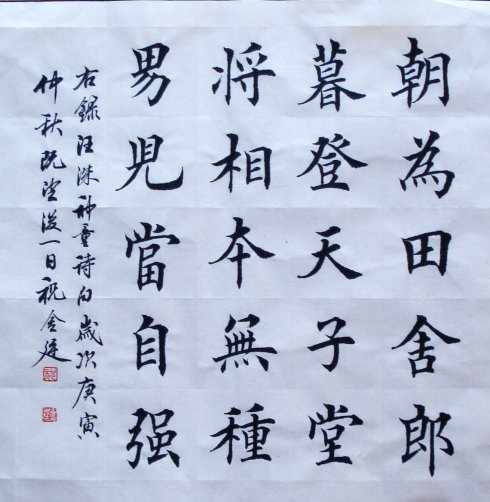 朝為田舍郎
暮登天子堂
將相本無種
男兒當自强
右録汪洙神童詩句歲次庚寅
仲秋既望後一日祝金廷